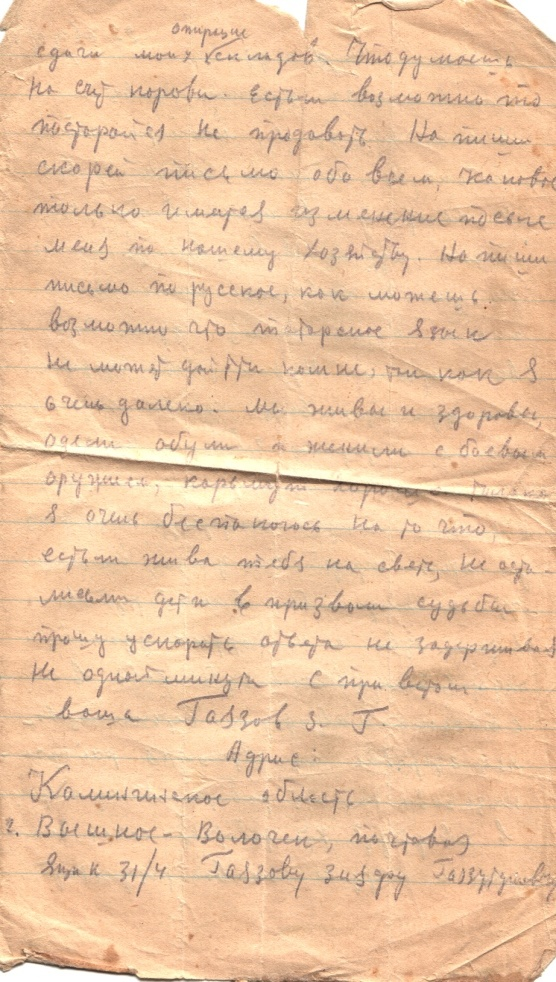 опирацие
сдачи моих складов. Что думаешь
на счет корови. Естьли возможно то
постарайся не продовать. Напиши
скорей письмо обо всем, каковое
только имется изменение после
меня по нашему хозяйству. Напиши
письмо по русское, как можешь
возможно что таторское язык
не может дойти комне, так как я
очень далеко. Мы живы и здоровы,
одели обули и женили с боевым
оружием, кормят хорошо. Только
я очень беспакоюсь на то что,
естьли жива тебя на свете, не оста-
лись ли дети в призвол судьбы
прошу ускорить ответа не задерживая
не одной минуты с приветом
ваша Гаязов З. Г.
Адрис
Калининское область
г. Вышное-Волочек, почтовая
ящик 31/4 Гаязову